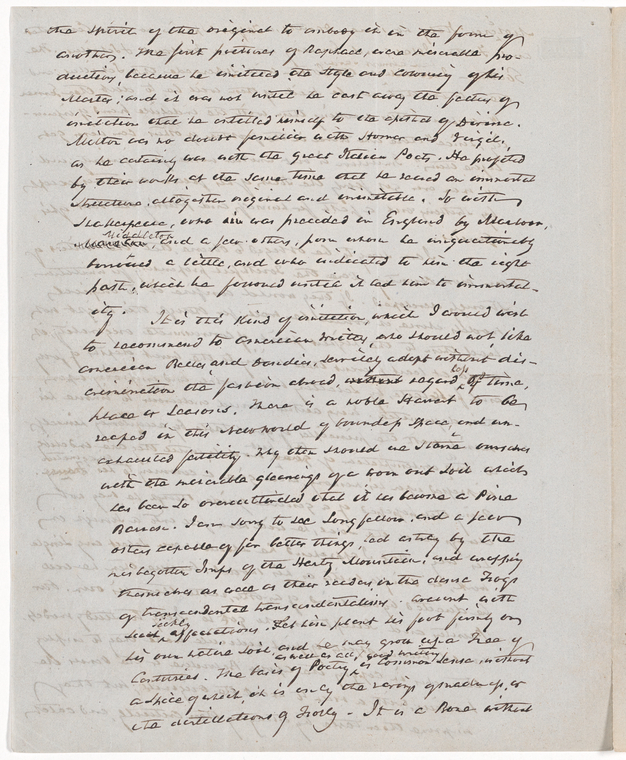 the Spirit of the original to embody it in the form of
another. The first pictures of Raphael, were miserable pro-
ductions, because he imitated the style and colouring of his
Master; and it was not until he cast away the fetters of
imitation that he entitled himself to the epithet of Divine.
Milton was no doubt familiar with Homer and Virgil,
as he certainly was with the great Italian Poets. He profited
by their works at the same time that he reared an immortal
Structure, altogether original and inimitable. So with
Shakespeare, who was preceded in England by Marlow,
Middleton
and a few others, from whom he unquestionably
borrowed a little, and who indicated to him the right
path, which he followed until it led him to immortal-
ity. It is this kind of imitation, which I would wish
to recommend to American writers, who should not, like
American Belles and Dandies, servilely adopt without dis-
crimination the fashions abroad, without regard to time,
place or seasons. There is a noble Harvest to be
reaped in this New world of boundless space, and un-
exhausted fertility. Why then should we starve ourselves
with the miserable gleanings of a worn out Soil which
has been so overcultivated that it has become a Pine
Barren. I am sorry to see Longfellow, and a few
others capable of far better things, led astray by the
misbegotten Imps of the Hartz Mountains, and wrapping
themselves as well as their readers in the dense Fogs
of transcendental transcendentalism with
such sickly affectations. Let him plant his foot firmly on
his own native Soil and he may grow up a Tree of
Centuries. The basis of Poetry as well as all good writing is Common Sense, without
a spice of which, it is only the ravings of madness, or
the distillations of Folly. It is a Bone without